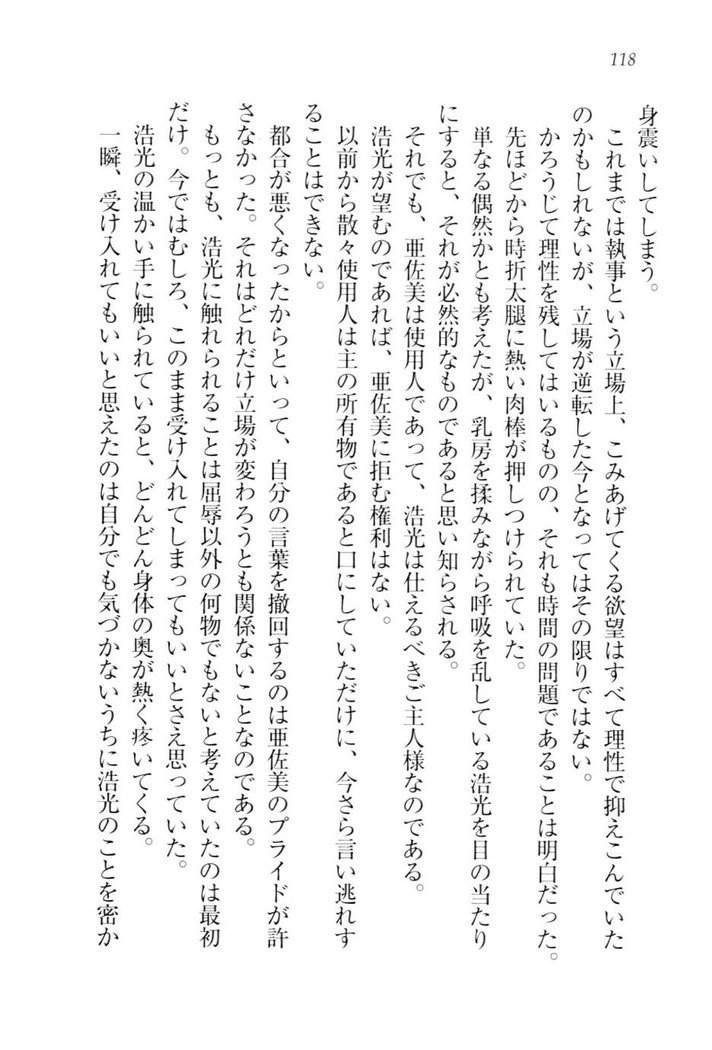 118
身震いしてしまう。
これまでは執事という立場上、こみあげてくる欲望はすべて理性で抑えこんでいた
のかもしれないが、立場が逆転した今となってはその限りではない。
かろうじて理性を残してはいるものの、それも時間の問題であることは明白だった。
先ほどから時折太腿に熱い肉棒が押しつけられていた。
単なる偶然かとも考えたが、乳房を揉みながら呼吸を乱している浩光を目の当たり
にすると、それが必然的なものであると思い知らされる。
それでも、亜佐美は使用人であって、浩光は仕えるべきご主人様なのである。
浩光が望むのであれば、亜佐美に拒む権利はない。
以前から散々使用人は主の所有物であると口にしていただけに、今さら言い逃れす
ることはできない。
都合が悪くなったからといって、自分の言葉を撤回するのは亜佐美のプライドが許
さなかった。それはどれだけ立場が変わろうとも関係ないことなのである。
もっとも、浩光に触れられることは屈辱以外の何物でもないと考えていたのは最初
だけ。今ではむしろ、このまま受け入れてしまってもいいとさえ思っていた。
浩光の温かい手に触られていると、どんどん身体の奥が熱く疼いてくる。
一瞬、受け入れてもいいと思えたのは自分でも気づかないうちに浩光のことを密か